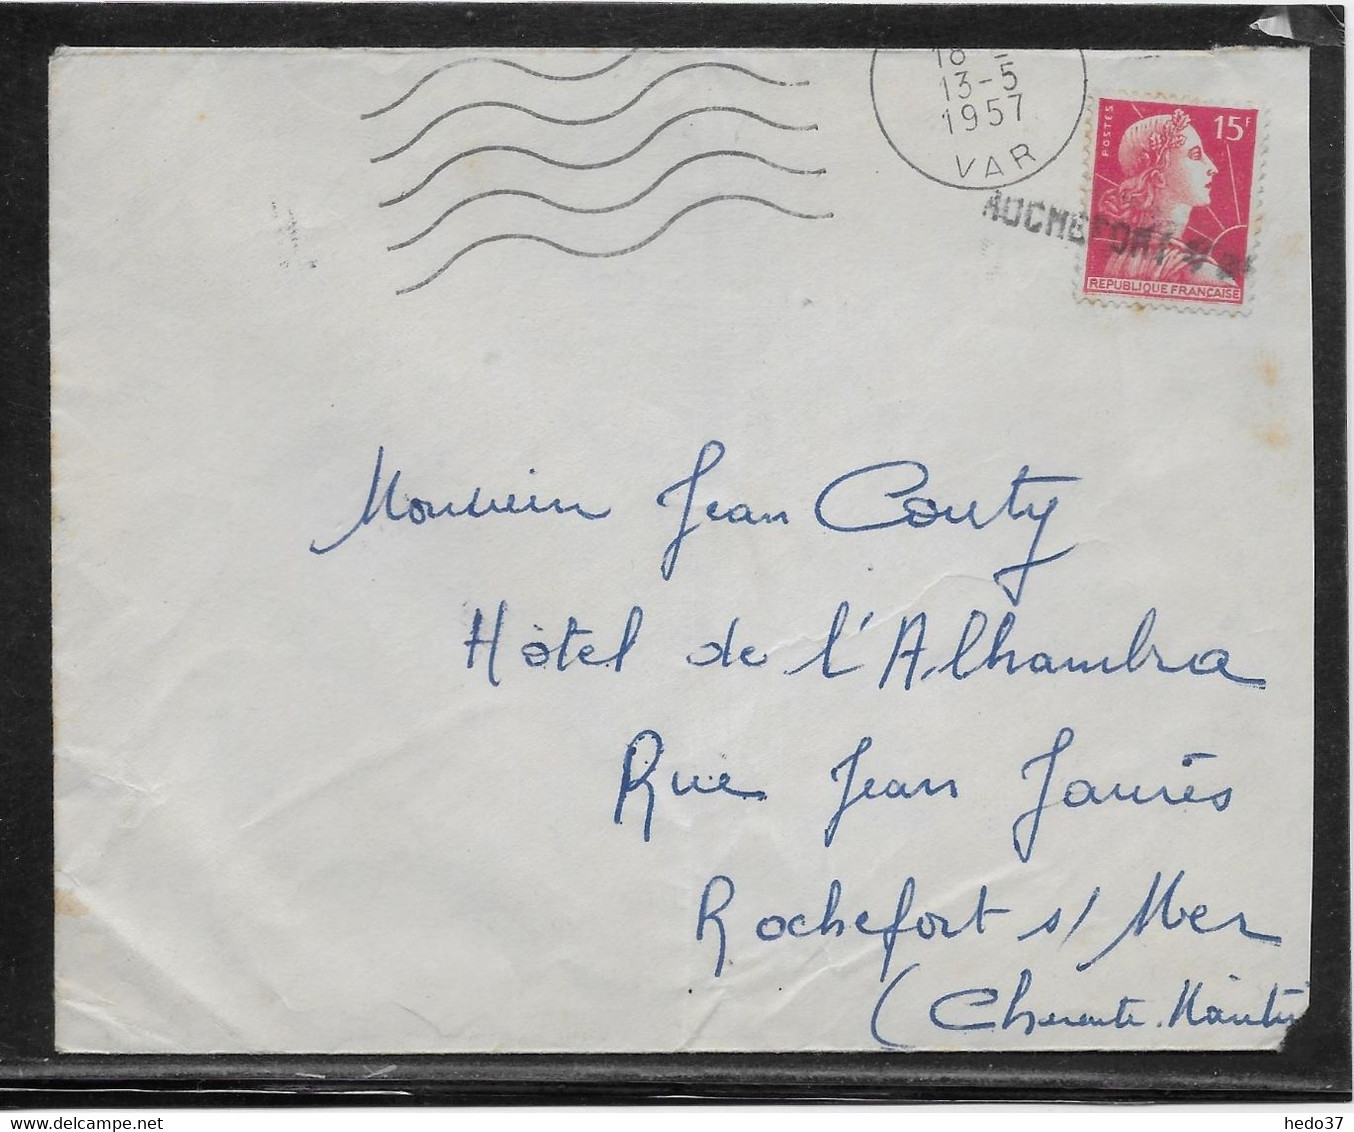 13-5
1957
VAR
POSTES
15F
REPUBLIQUE FRANÇAISE
Monsieur Jean Couty
Hôtel de l'Alhambra
Rue Jean Jaurès
Rochefort s/ Mer
(Charente-Maritime
delcampe.net
hedo37